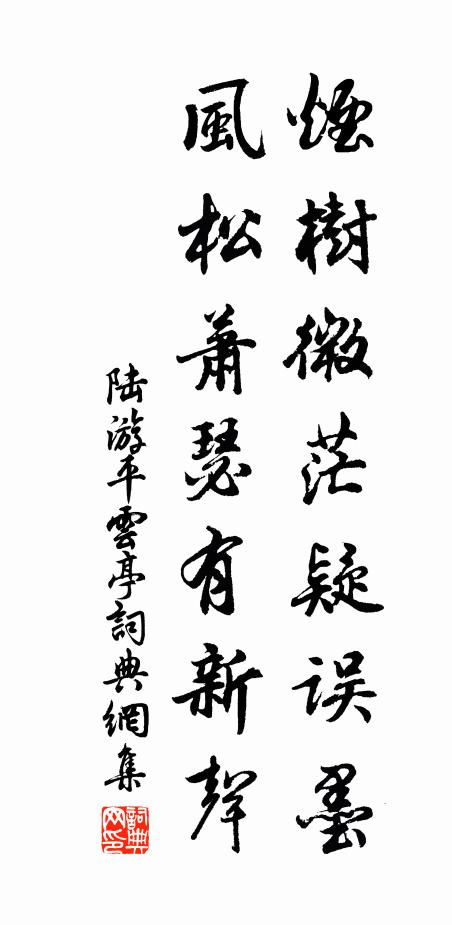 煙樹微茫疑误墨
風松蕭瑟有新聲
陆游平雲亭詞典網集
詞典网印